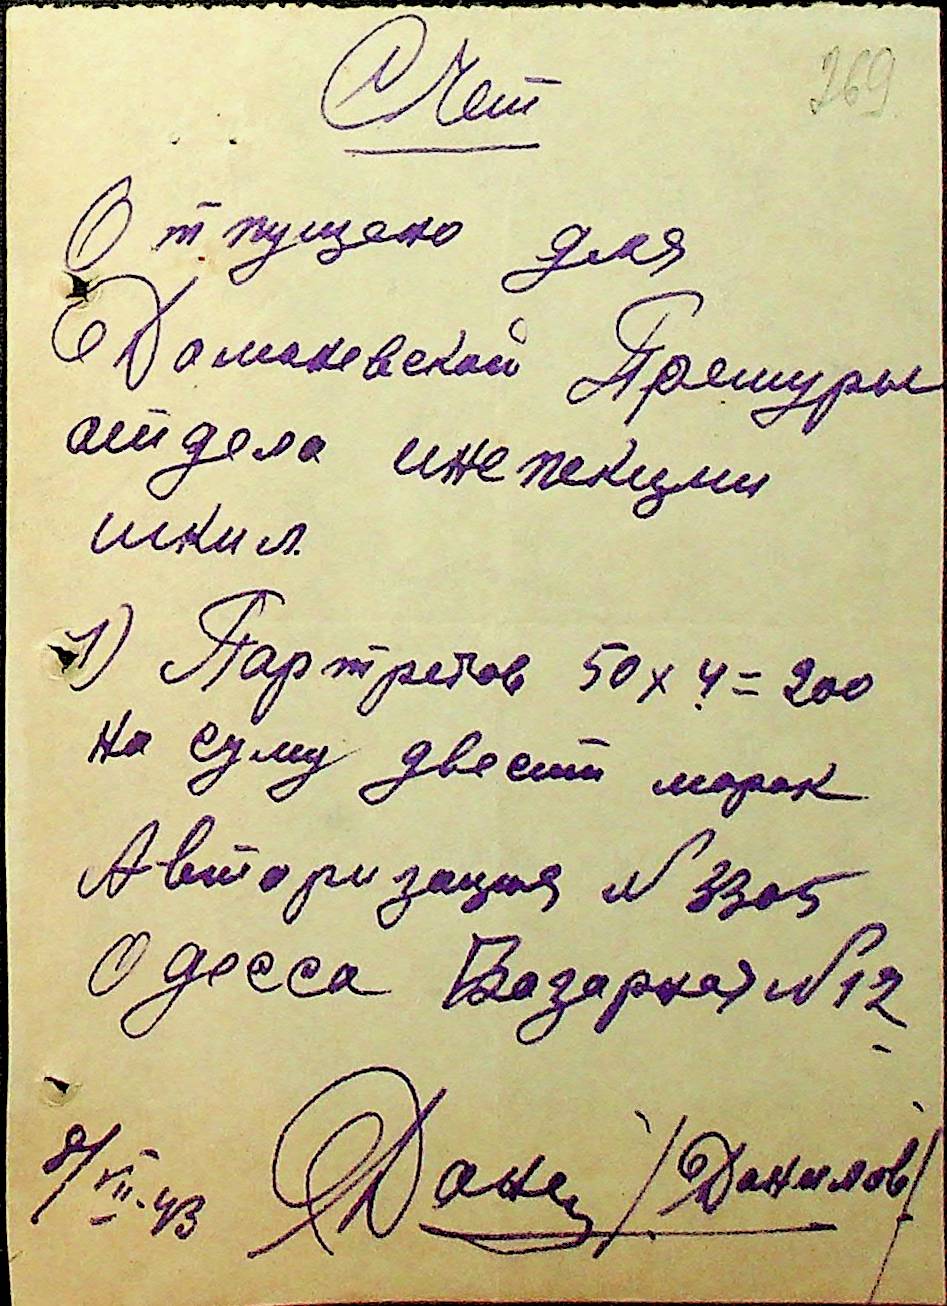 269
Счет
Отпущено для
Доманевской Претуры
отдела инспекции
шкил
1) Партретов 50 х 4 = 200
на суму двести марок
Авторизация № 3305
Одесса Базарная № 12
8/VII-43 /Данилов/